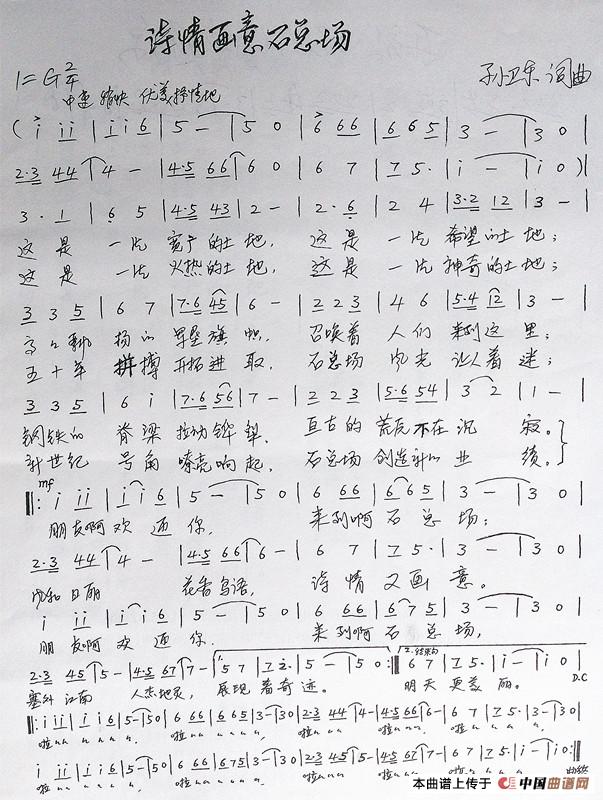 诗情画意石总场
1=G 2/4
孙卫东 词曲
中速 稍快 优美抒情地
( i ii | i i 6 | 5 - | 5 0 | 6 66 | 6 6 5 | 3 - | 3 0 |
2·3 44 | 4 - | 4·5 66 | 6 0 | 6 7 | 7 5· | i - | i 0 )|
3 · 1 | 6 5 | 4·5 43 | 2 - | 2 · 6 | 2 4 | 3·2 12 | 3 - |
这是 一片 宽广的土地， 这是 一片 希望的土地；
这是 一片 火热的土地， 这是 一片 神奇的土地；
3 3 5 | 6 7 | 7·6 45 | 6 - | 2 2 3 | 4 6 | 5·4 12 | 3 - |
高高飘 扬的 军垦旗 帜， 召唤着 人们 来到这里；
五十年 拼搏 开拓进 取， 石总场 风光 让人着迷；
3 3 5 | 6 i | 7·6 56 | 7 - | 2 2 3 | 5·6 54 | 3 2 | 1 - |
钢铁的 脊梁 拉动铧犁， 亘古的 荒原不在沉 寂。
新世纪 号角 嘹亮响起， 石总场 创造新的业 绩。
mf
‖: i ii | i i 6 | 5 - | 5 0 | 6 66 | 6 6 5 | 3 - | 3 0 |
朋友啊 欢 迎 你， 来到啊 石 总 场；
2·3 44 | 4 - | 4·5 66 | 6 - | 6 7 | 7 5· | 3 - | 3 0 |
日丽 花香鸟语， 诗情 又画 意。
i ii | i i 6 | 5 - | 5 0 | 6 66 | 6 7 5 | 3 - | 3 0 |
朋友啊 欢 迎 你， 来到啊 石 总 场，
2·3 45 | 5 - | 4·5 67 | 7 - | 1. 5 7 | 7 2· | 5 - | 5 0 :‖ 2. 结束句 6 7 | 7 5· | i - | i 0 |
塞外 江南 人杰地灵， 展现 着奇迹。 明天 更美 丽。
D.C
‖: i ii | i i 6 | 5 - | 5 0 | 6 66 | 6 6 5 | 3 - | 3 0 | 2·3 44 | 4 - | 4·5 66 | 6 - | 6 7 | 7 5· | 3 - | 3 0 |
啦 啦 啦 啦
i ii | i i 6 | 5 - | 5 0 | 6 66 | 6 75 | 3 - | 3 0 | 2·3 45 | 5 - | 4·5 67 | 7 - | 6 7 | 7 5· | i - | i 0 :‖
啦 啦 啦
本曲谱上传于 中国曲谱网